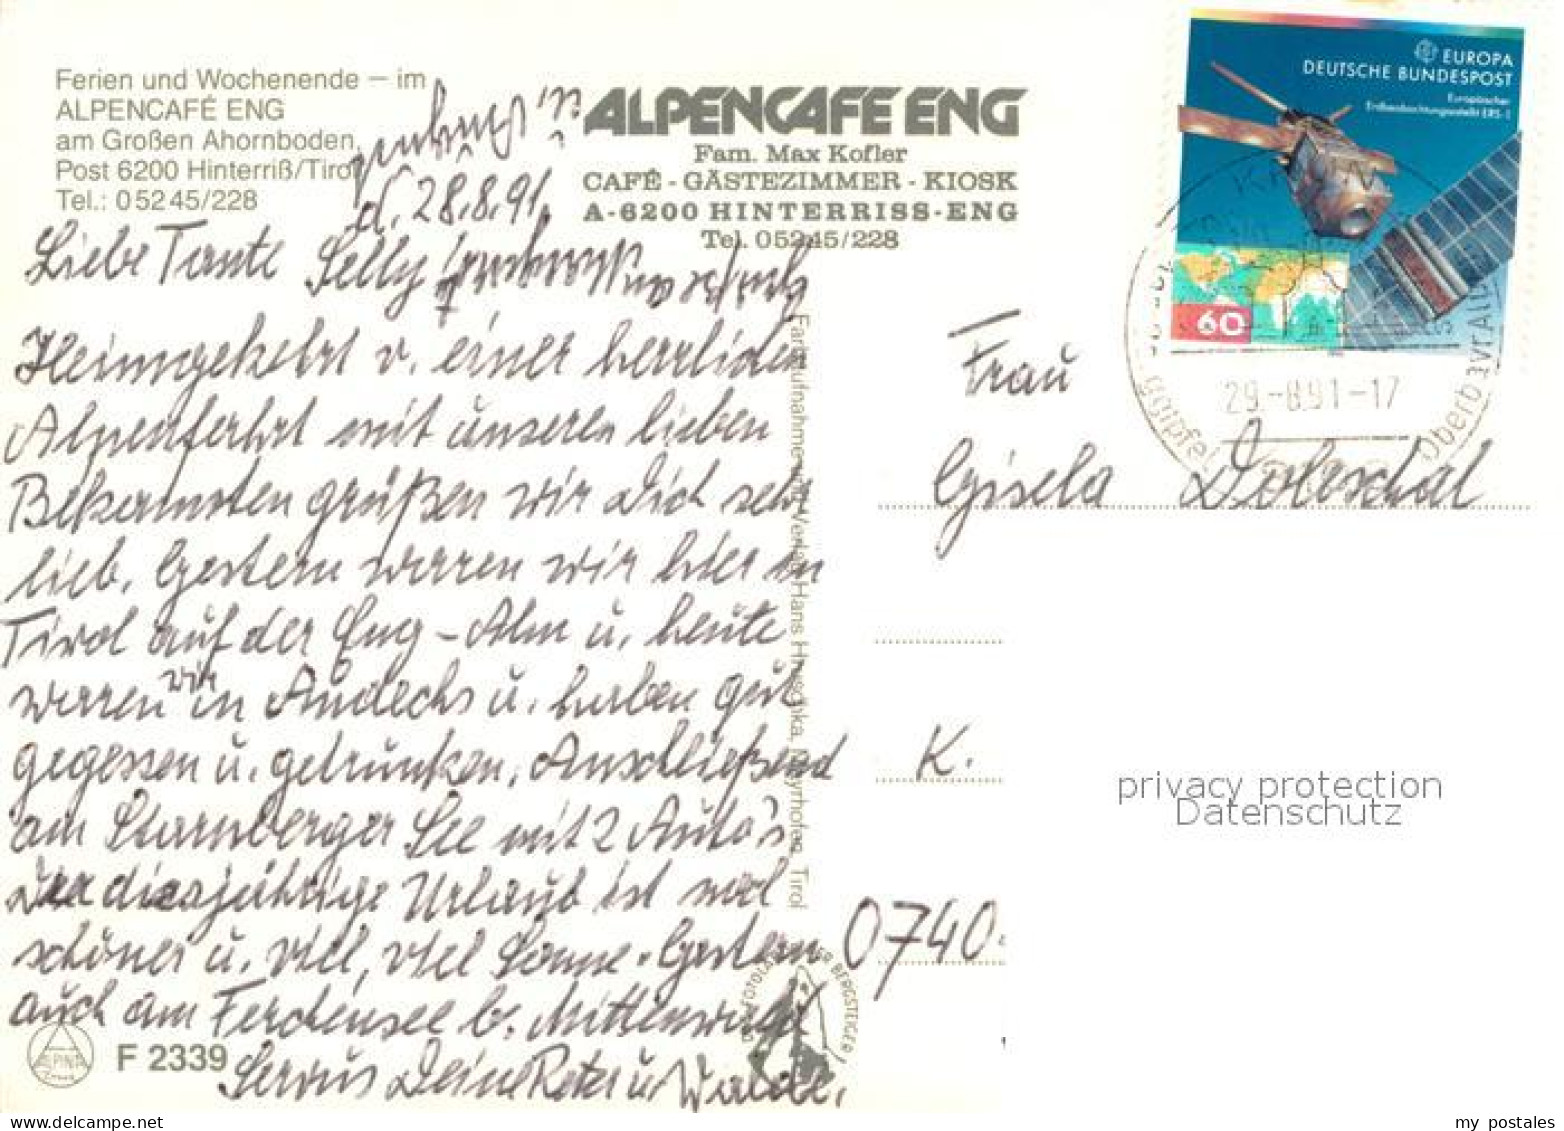 Ferien und Wochenende – im
ALPENCAFÉ ENG
am Großen Ahornboden,
Post 6200 Hinterriß/Tirol
Tel.: 0 52 45/228
ALPENCAFE ENG
Fam. Max Kofler
CAFÉ - GÄSTEZIMMER - KIOSK
A-6200 HINTERRISS-ENG
Tel. 05245/228
EUROPA
DEUTSCHE BUNDESPOST
Europäischer
Erdbeobachtungssatellit ERS-1
60
29.-8.91-17
Oberbayr
d. 28.8.91.
Liebe Tante Selly!
Heimgekehrt v. einer herrlichen
Alpenfahrt mit unseren lieben
Bekannten grüßen wir Dich sehr
lieb. Gestern waren wir hier in
Tirol auf der Eng-Alm u. heute
waren wir in Andechs u. haben gut
gegessen u. getrunken. Anschließend
am Starnberger See mit 2 Auto's
Der diesjährige Urlaub ist mal
schöner u. viel, viel Sonne. Gestern
auch am Ferchensee b. Mittenwald
Servus Deine u.
Frau
Gisela Doleschal
K.
0740
Farbaufnahme und Verlag: Hans Hruschka, Mayrhofen, Tirol
DER BERGSTEIGER
ALPINA
F 2339
privacy protection
Datenschutz
my postales